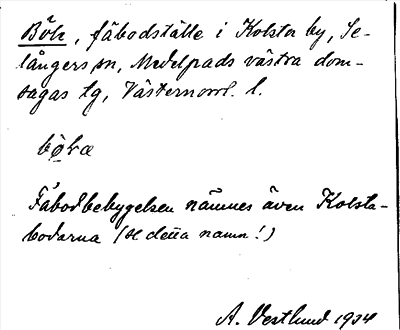 Böle, fäbodställe i Kolsta by, Se-
långers sn, Medelpads västra dom-
sagas tg, Västernorrl. l.
Fäbodbebygelsen nämnes även Kolsta-
bodarna (se detta namn!)
A. Vestlund 1934